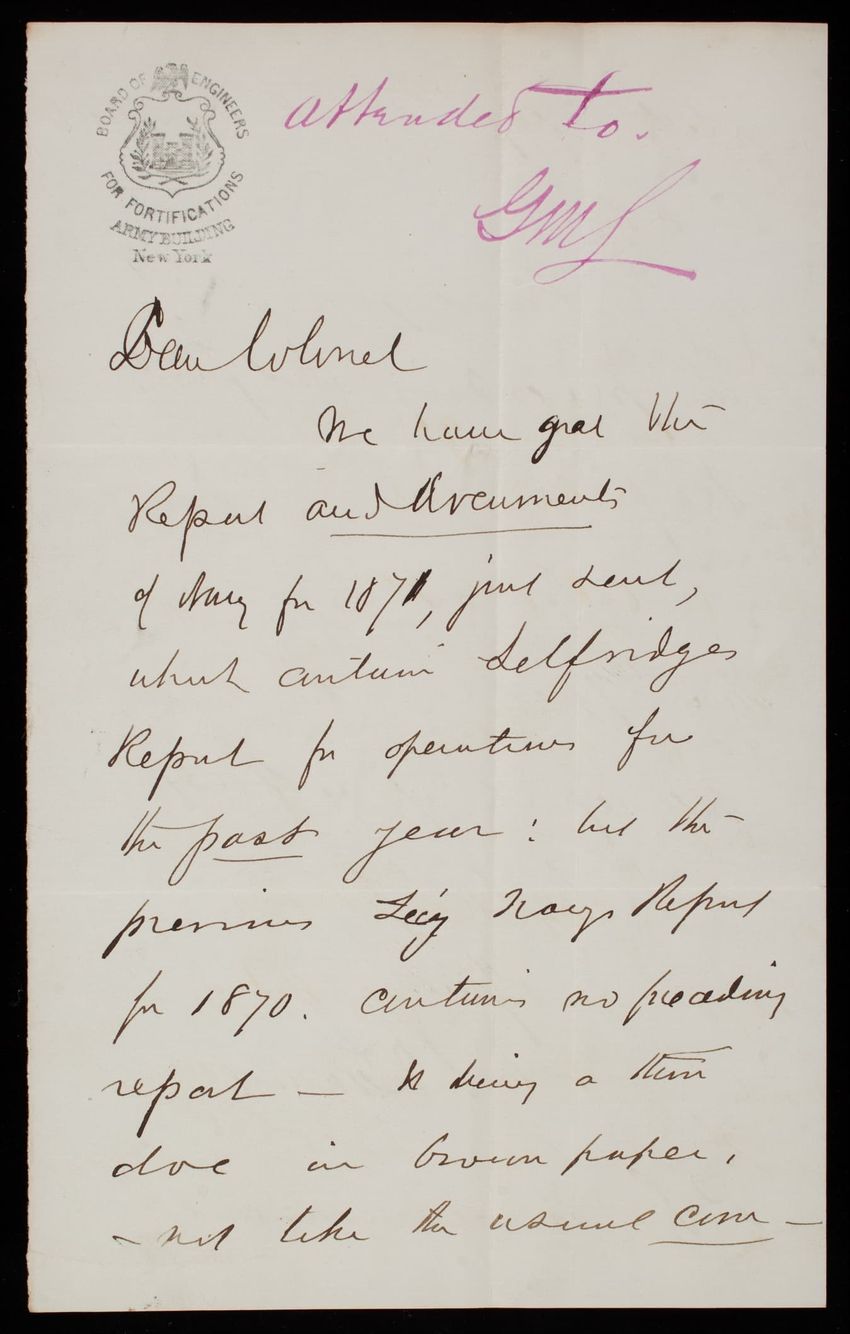 BOARD OF ENGINEERS
FOR FORTIFICATIONS
ARMY BUILDING
New York
attended to.
GML
Dear Colonel
We have got the
Report and Documents
of Navy for 1871, just sent,
which contain Selfridges
Report for operations for
the past year: but the
previous Secy Navys Report
for 1870. contains no preceding
report — it being a thin
doc in brown paper,
- not like the usual com-